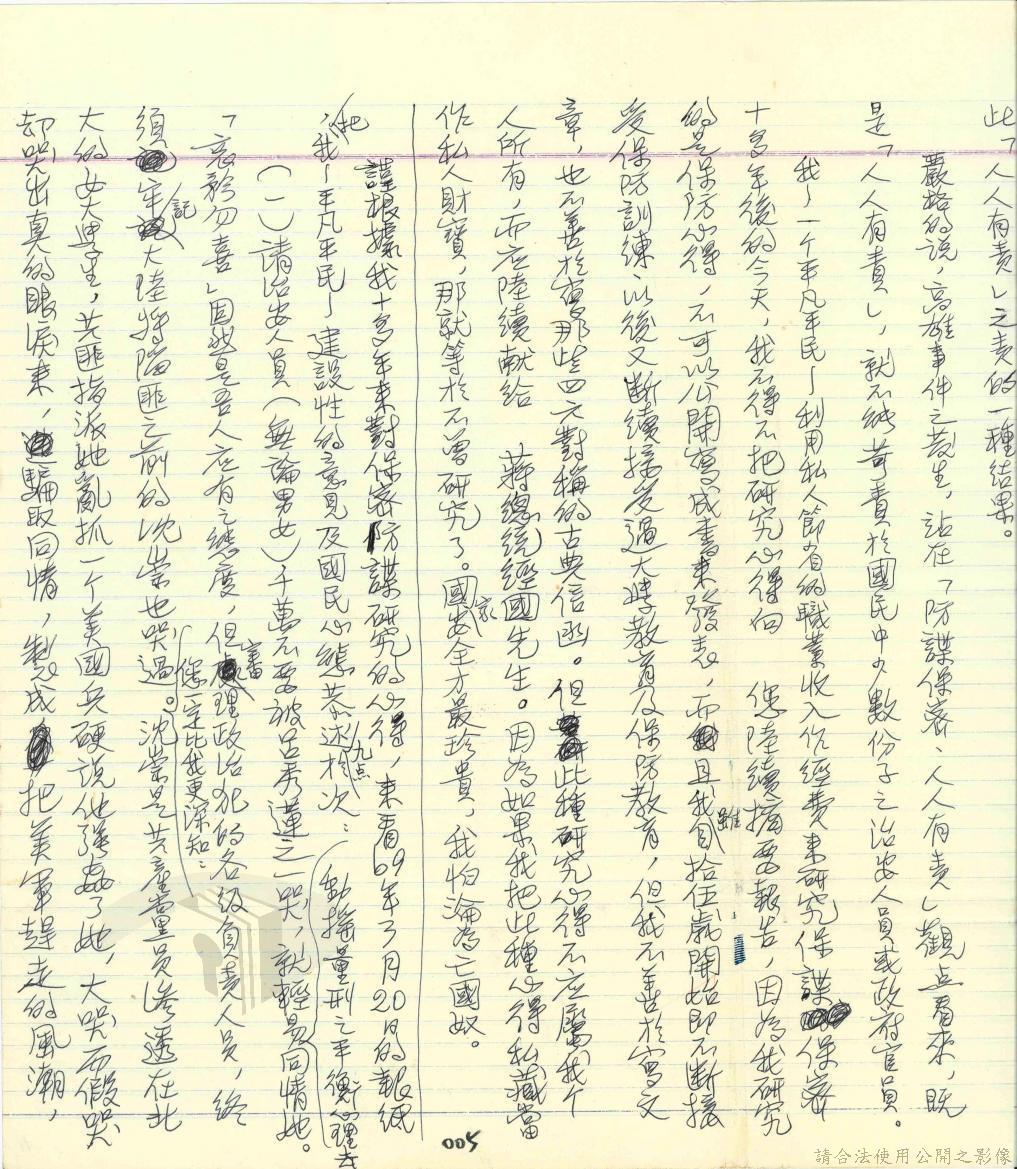 此「人人有責」之責的一種結果。
嚴格的說，高雄事件之發生，站在「防諜保密、人人有責」觀点看來，既
是「人人有責」，就不能苛責於國民中少數份子之治安人員或政府官員。
我～一个平凡平民～利用私人節省的職業收入作經費來研究保諜保密
十多年後的今天，我不得不把研究心得向　您陸續摘要報告，因為我研究
的是保防心得，不可以公開寫成書來發表，而且我雖自拾伍歲開始即不斷接
受保防訓練、以後又斷續接受過大學教育及保防教育，但我不善於寫文
章，也不善於寫那些四六對稱的古典信函。但此種研究心得不应屬我个
人所有，而应陸續献給　蔣總統經國先生。因為如果我把此種心得私藏當
作私人財寶，那就等於不曾研究了。國家安全才最珍貴，我怕淪為亡國奴。
謹根據我十多年來對保密防諜研究的心得，來看69年3月20日的報紙
，把我～平凡平民～建設性的意見及國民心態恭述於次：
九点
(一)請治安人員(無論男女)千萬不要被呂秀蓮之一哭，就輕易同情她。
動搖量刑之平衡心理去
「哀矜勿喜」固然是吾人应有之態度，但審理政治犯的各級負責人員，終
您一定比我更深知：
須牢記大陸將陷匪之前的沈崇也哭過。沈崇是共產黨員滲透在北
大的女大學生，共匪指派她亂抓一个美國兵硬說他強姦了她，大哭而假哭
却哭出真的眼淚來，騙取同情，製成把美軍趕走的風潮，
005
請合法使用公開之影像